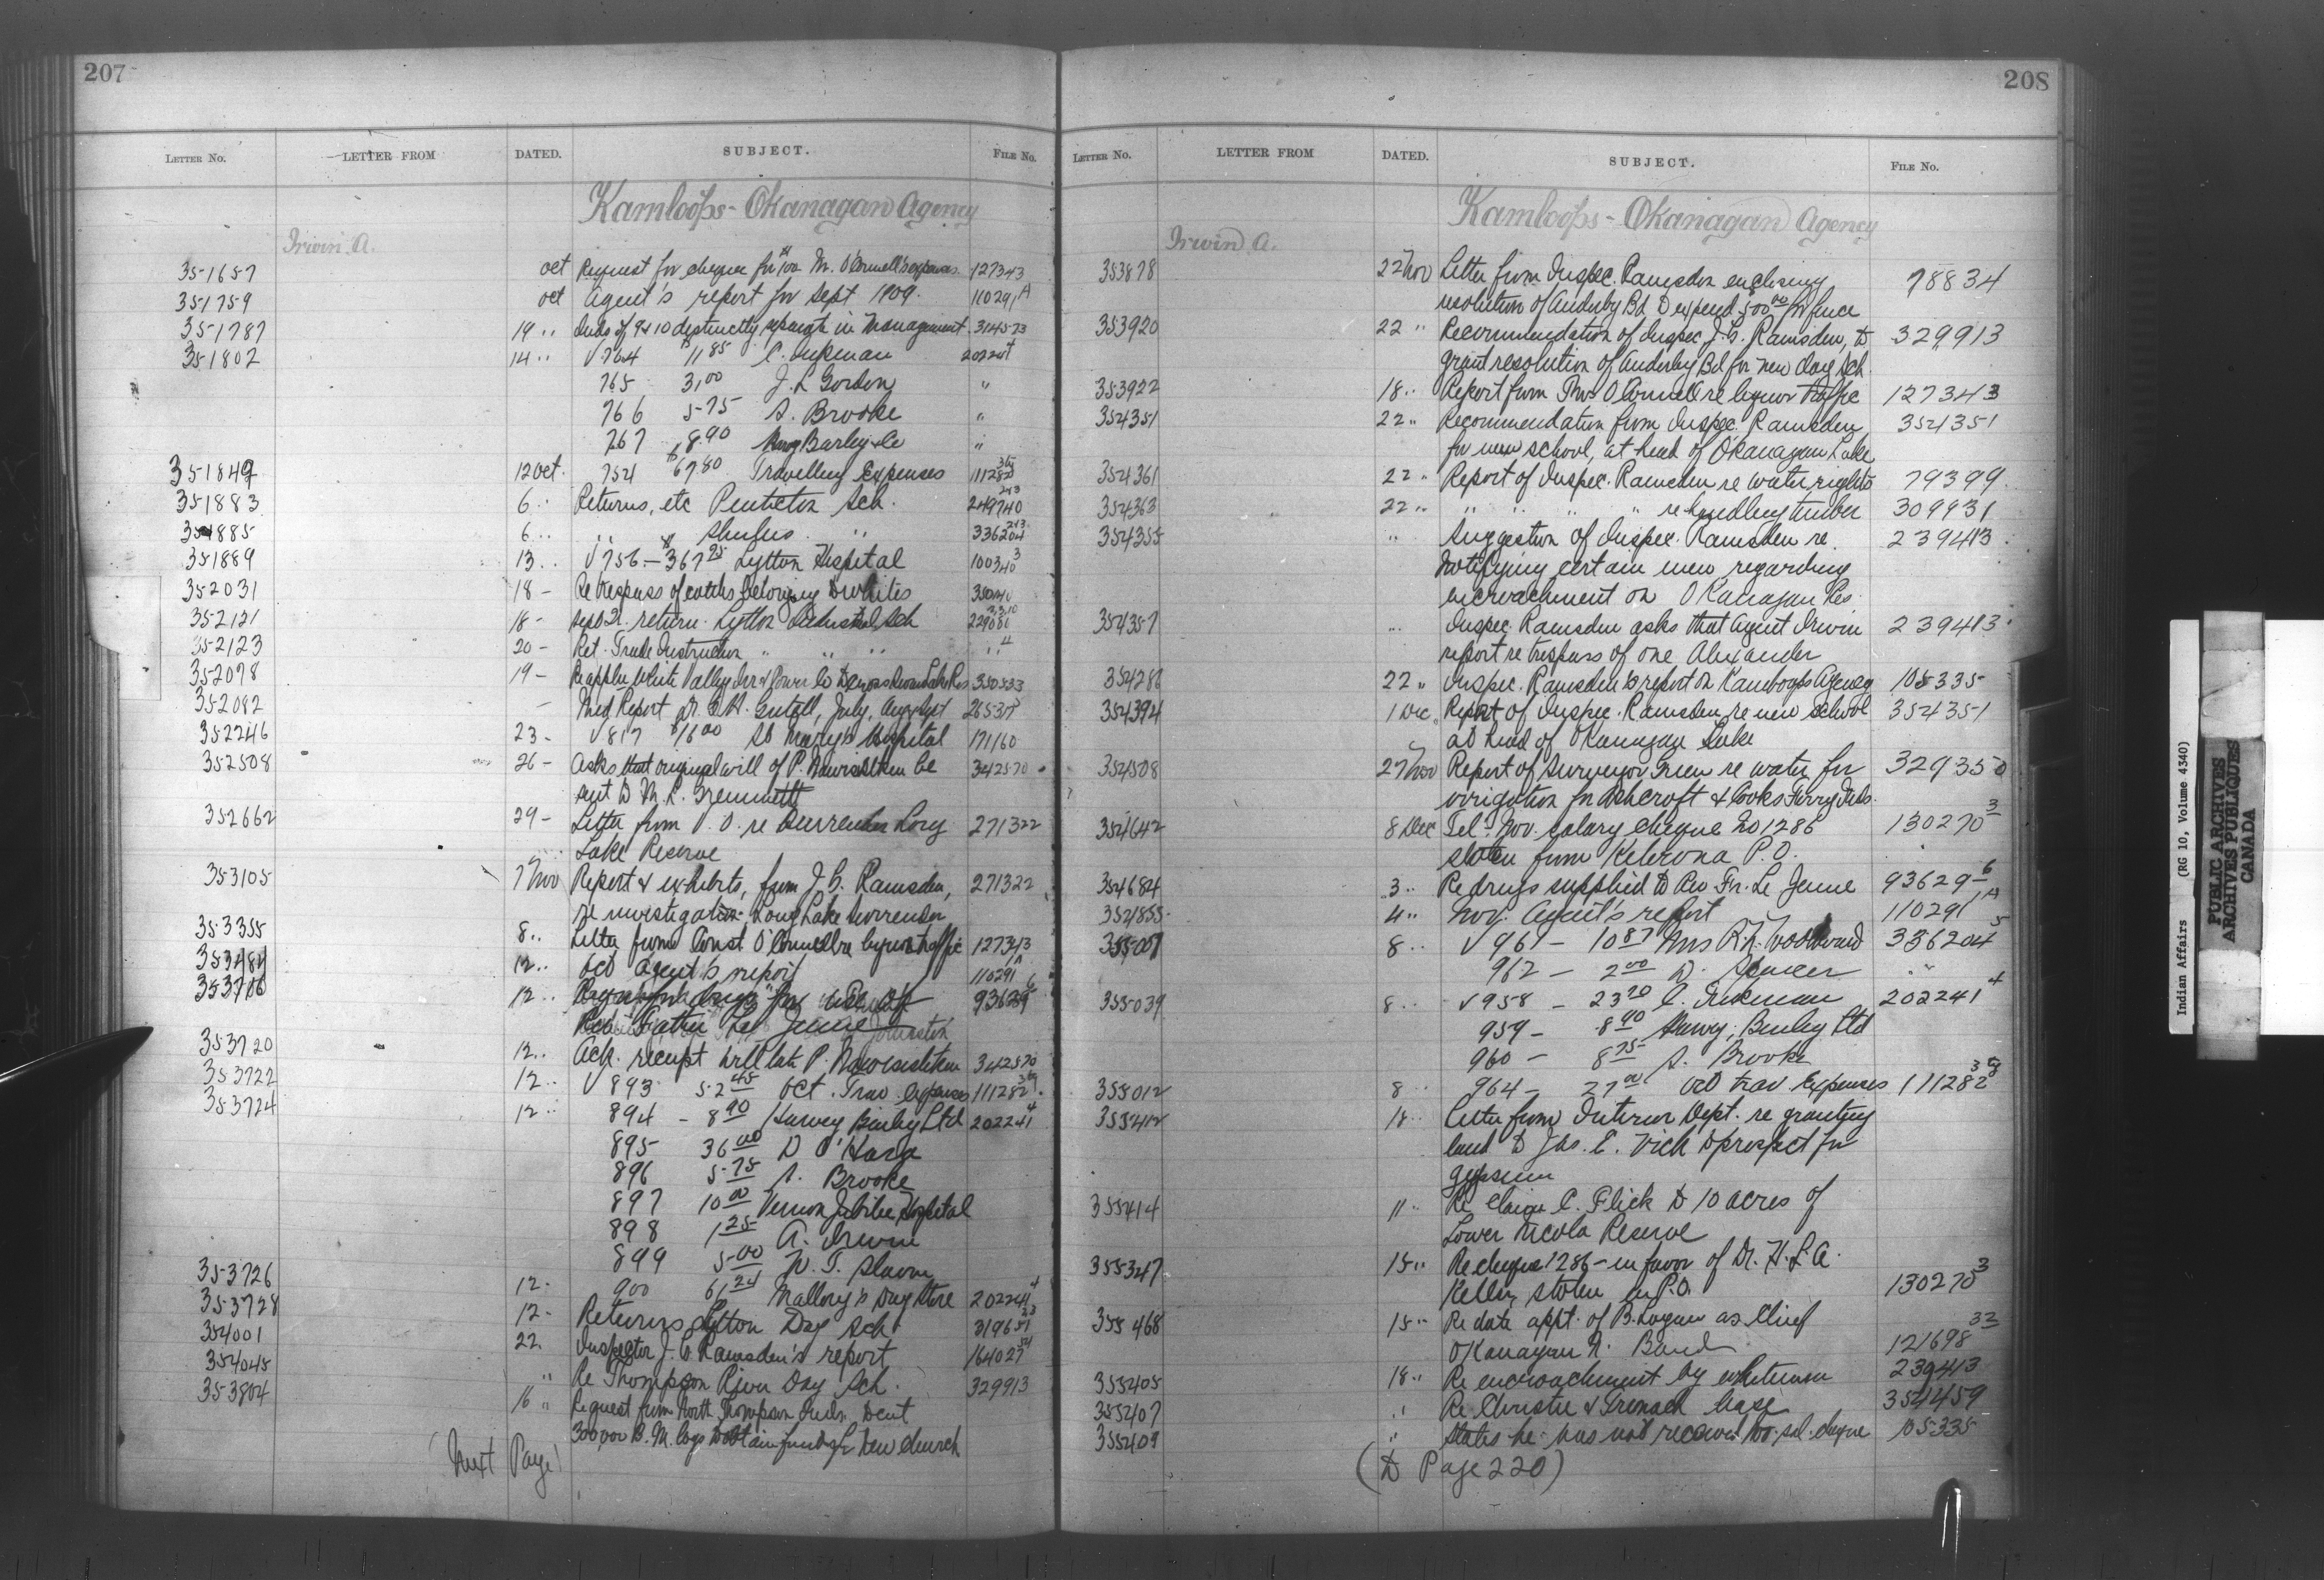 207
LETTER NO. LETTER FROM DATED. SUBJECT. FILE NO.
Kamloops - Okanagan Agency
Irwin A.
351657 Oct Request for cheque for $100 M. O'Connell's expenses 127343
351759 Oct Agent's report for Sept 1909. 110291 A
351787 19 " Inds of 9 & 10 distinctly separate in management 314573
351802 14 " √ 764 $11 85 C. 20224
765 3,00 J. L Gordon "
766 5-75 A. Brooke "
767 8.90 Barley & Co "
351849 12 Oct. 754 $67.80 Travelling Expenses 111282
351883 6 . Returns, etc Penticton Sch. 249740
351885 6 .. " Shulus " 336204
351889 13 .. √ 756 - $367 95 Lytton Hospital 100340 3
352031 18 - Re trespass of cattle belonging to whites
352121 18 - Sept Qr. return. Lytton Industrial Sch
352123 20 - Ret. Trade Instruction " " " " "
352078 19 - Re appln White Valley Irr & Power Co to 350533
352082 - Med Report Dr. July, Aug & Sept
352246 23 - √ 817 $16 00 St Mary's Hospital 171160
352508 26 - Asks that original will of P. be 342570
sent to M. L. Grimmett
352662 29 - Letter from V. O. re Surrender Long 271322
Lake Reserve
353105 7 Nov Report & exhibits, from J. G. Ramsden, 271322
re investigation Long Lake surrender
353355 8 .. Letter from Const O'Connell re liquor traffic 127343
353484 12 .. Oct Agent's report 110291 A
353706 12 .. for drugs for use of 93629 6
Rev. Father Le Jeune
353720 12 .. Ack. receipt will late P. 342570
353722 12 .. √ 893 52 45 Oct. Trav expenses 111282
353724 12 .. 894 - 8 90 Harvey Bailey Ltd 202241 4
895 36 00 D O'Hara
896 5-75 A. Brooke
897 10 00 Vernon Jubilee Hospital
898 1 25 A. Irwin
899 5-00 W. T. Slavin
353726 12 - 900 61 24 Mallory's Drug Store 202241 4
353728 12 - Returns Lytton Day Sch 319651
354001 22. Inspector J. G. Ramsden's report 164027
354045 " Re Thompson River Day Sch. 329913
353804 16 " Request from North Thompson Inds. to cut
300,000 B. M. logs to obtain funds for new church
(Next Page)
208
LETTER NO. LETTER FROM DATED. SUBJECT. FILE NO.
Kamloops - Okanagan Agency
Irwin A.
353878 22 Nov Letter from Inspec. Ramsden enclosing 78834
resolution of Enderby Bd to expend 500 00 for fence
353920 22 " Recommendation of Inspec J. G. Ramsden, to 329913
grant resolution of Enderby Bd for new day Sch.
353922 18 .. Report from Thos O'Connell re liquor traffic 127343
354351 22 .. Recommendation from Inspec. Ramsden 354351
for new school, at head of Okanagan Lake
354361 22 . Report of Inspec. Ramsden re water rights 79399.
354363 22 .. " " " " re handling timber 309931
354355 " Suggestion of Inspec. Ramsden re. 239413.
notifying certain men regarding
encroachment on Okanagan Res.
354357 ... Inspec. Ramsden asks that Agent Irwin 239413.
report re trespass of one Alexander
354286 22 .. Inspec. Ramsden's report on Kamloops Agency 105335
354394 1 Dec. Report of Inspec. Ramsden re new school 354351
at head of Okanagan Lake
354508 27 Nov Report of Surveyor Green re water for 329350
irrigation for Ashcroft & Cooks Ferry Inds.
354642 8 Dec Tel - Nov. salary cheque No 1286 130270 3
stolen from Kelowna P. O.
354684 3 .. Re drugs supplied to Rev Fr. Le Jeune 93629-6
354855 4 .. Nov. Agent's report 110291 A
355007 8 .. √ 961 - 10 87 Mrs R. H. Woodward 336204 5
962 - 2 00 D. Spencer " "
355039 8 .. √ 958 - 23 70 C. 202241 4
959 - 8 90 Harvey, Bailey Ltd
960 - 8 75 A. Brooke
355012 8 964 - 27 00 Oct trav expenses 111282
355412 18 .. Letter from Interior Dept. re granting
land to Jas. E. Vick to prospect for
gypsum
355414 11 .. Re claim C. Flick to 10 acres of
Lower Nicola Reserve
355347 15 .. Re cheque 1286 - in favor of Dr. H. L. A.
Keller, stolen in P. O. 130270 3
355468 15 .. Re date appt. of B. Logan as Chief
Okanagan N. Band 121698 33
355405 18 .. Re encroachment by whitemen 239413
355407 " Re Christie & Trenach lease 354459
355409 " States he has not received sal. cheque 105335
(to Page 220)
Indian Affairs (RG 10, Volume 4340)
PUBLIC ARCHIVES
ARCHIVES PUBLIQUES
CANADA